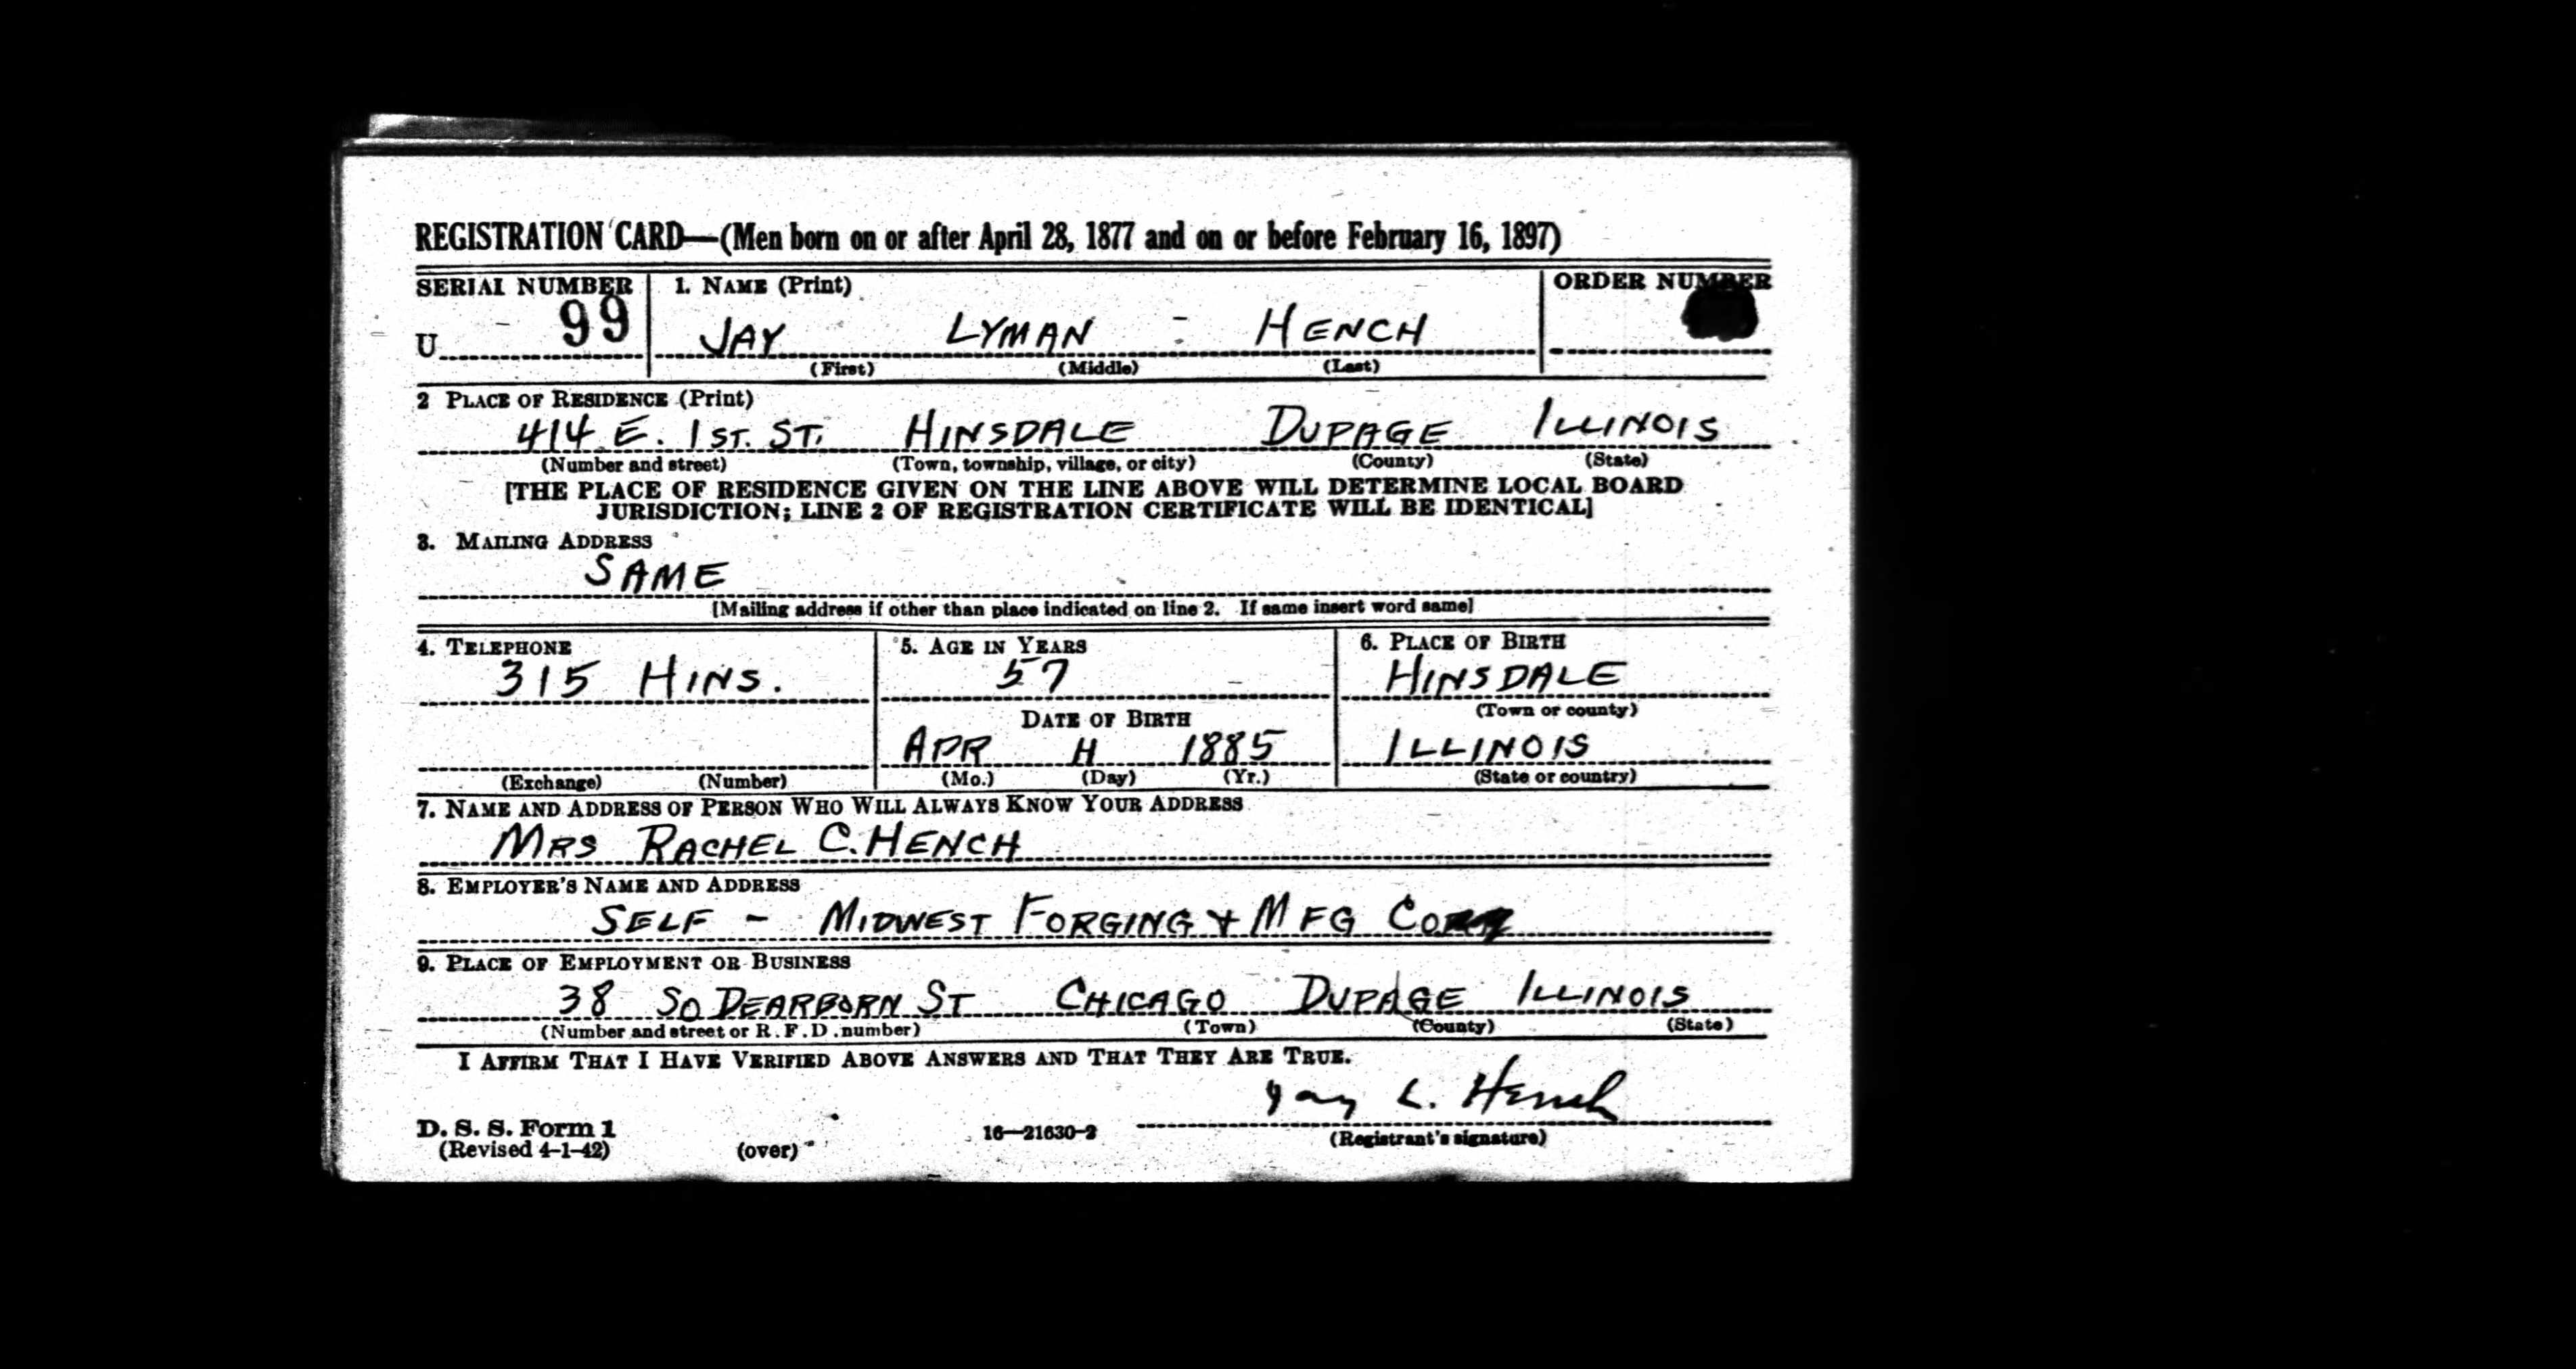 REGISTRATION CARD—(Men born on or after April 28, 1877 and on or before February 16, 1897)
SERIAL NUMBER 1. NAME (Print) ORDER NUMBER
U 99 JAY LYMAN - HENCH
(First) (Middle) (Last)
2 PLACE OF RESIDENCE (Print)
414 E. 1ST. ST. HINSDALE DUPAGE ILLINOIS
(Number and street) (Town, township, village, or city) (County) (State)
[THE PLACE OF RESIDENCE GIVEN ON THE LINE ABOVE WILL DETERMINE LOCAL BOARD
JURISDICTION; LINE 2 OF REGISTRATION CERTIFICATE WILL BE IDENTICAL]
3. MAILING ADDRESS
SAME
[Mailing address if other than place indicated on line 2. If same insert word same]
4. TELEPHONE 5. AGE IN YEARS 6. PLACE OF BIRTH
315 HINS. 57 HINSDALE
DATE OF BIRTH (Town or county)
APR 1885 ILLINOIS
(Exchange) (Number) (Mo.) (Day) (Yr.) (State or country)
7. NAME AND ADDRESS OF PERSON WHO WILL ALWAYS KNOW YOUR ADDRESS
MRS RACHEL C. HENCH
8. EMPLOYER'S NAME AND ADDRESS
SELF - MIDWEST FORGING + MFG CO
9. PLACE OF EMPLOYMENT OR BUSINESS
38 SO DEARBORN ST CHICAGO DUPAGE ILLINOIS
(Number and street or R. F. D. number) (Town) (County) (State)
I AFFIRM THAT I HAVE VERIFIED ABOVE ANSWERS AND THAT THEY ARE TRUE.
Jay L. Hench
D. S. S. Form 1
(Revised 4-1-42) (over) 16—21630-2 (Registrant's signature)